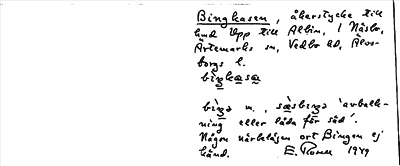 Binghasen, åkerstycke till
hmd Upp till Albin, 1 Näsbo,
Ärtemarks sn, Vedbo hd, Älvs-
borgs l.
bìŋhasa
bìŋə m., sǽsbiŋə 'avbalk-
ning eller låda för säd'.
Någon närbelägen ort Bingen ej
känd. E. Rosell 1949